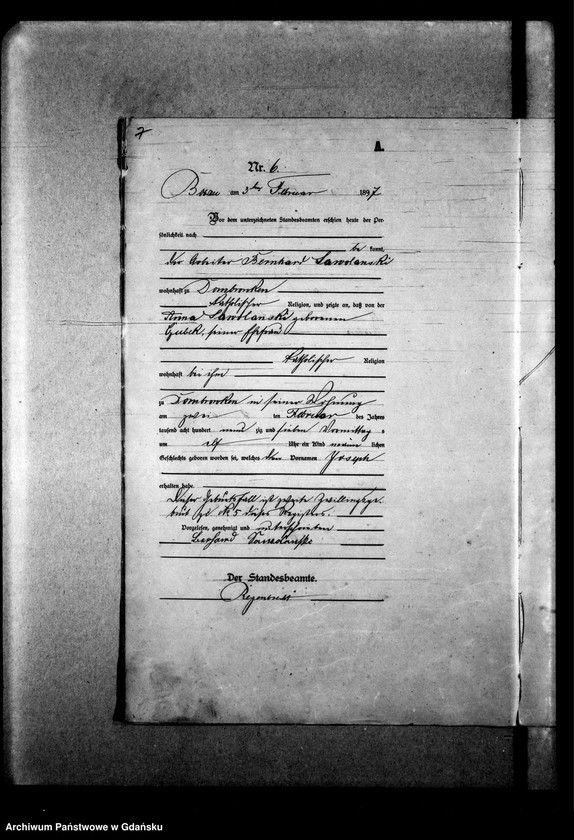 7
A.
Nr. 6.
am 3ten Februar 1897
Vor dem unterzeichneten Standesbeamten erschien heute der Per-
sönlichkeit nach
be kannt,
der Arbeiter Bernhard Sawolanski
wohnhaft zu Dombrowken
katholischer Religion, und zeigte an, daß von der
Anna Sawolanski geborenen
seiner Ehefrau
katholischer Religion
wohnhaft bei ihm
zu Dombrowken in seiner Wohnung
am zwei ten Februar des Jahres
tausend acht hundert neun zig und sieben Vormittag s
um elf Uhr ein Kind männ lichen
Geschlechts geboren worden sei, welches den Vornamen Joseph
erhalten habe.
Dieser Geburtsfall ist zweite Zwillingsge-
burt zu No 5 dieses Registers.
Vorgelesen, genehmigt und unterschrieben
Der Standesbeamte.
Archiwum Państwowe w Gdańsku